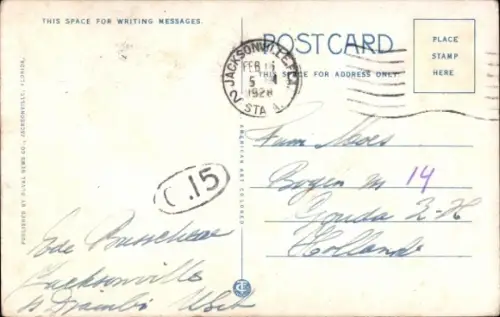 THIS SPACE FOR WRITING MESSAGES.
POSTCARD
THIS SPACE FOR ADDRESS ONLY
PLACE
STAMP
HERE
JACKSONVILLE, FLA.
FEB 15
5
1928
2 STA A.
PUBLISHED BY DUVAL NEWS CO., JACKSONVILLE, FLORIDA.
AMERICAN ART COLORED
C.15
Bogen m 14
Gouda Z-H
Holland
Jacksonville
CT